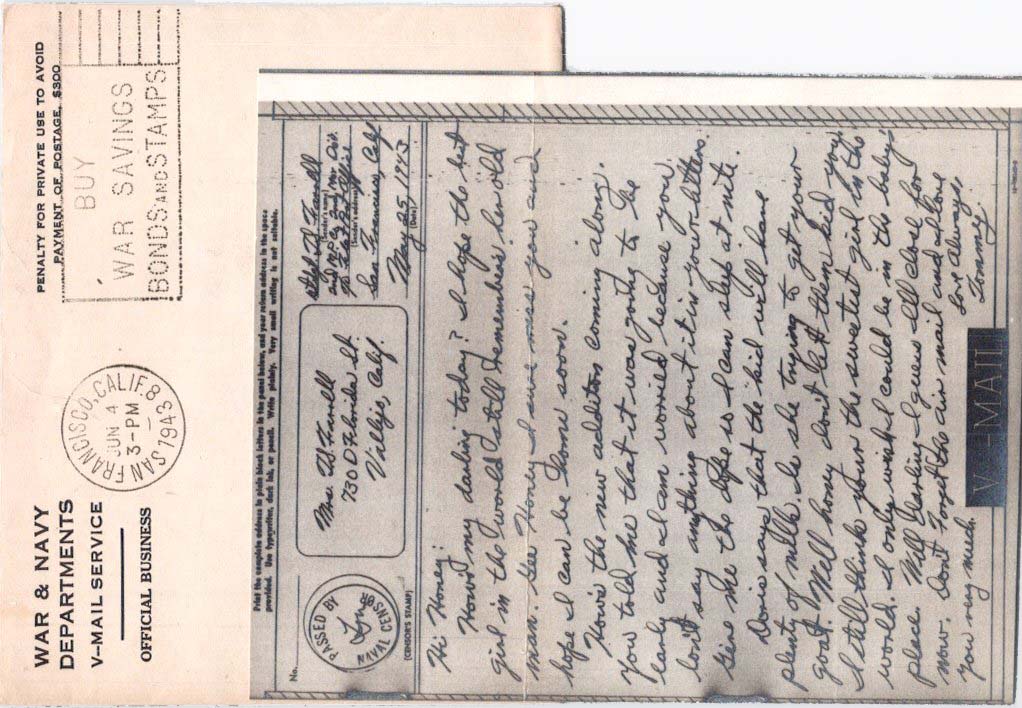 WAR & NAVY
DEPARTMENTS
V-MAIL SERVICE
OFFICIAL BUSINESS
SAN FRANCISCO, CALIF. 8
JUN 4
3-PM
1943
BUY
WAR SAVINGS
BONDS AND STAMPS
PENALTY FOR PRIVATE USE TO AVOID
PAYMENT OF POSTAGE, $300
Print the complete address in plain block letters in the panel below, and your return address in the space
provided. Use typewriter, dark ink, or pencil. Write plainly. Very small writing is not suitable.
No.
PASSED BY
NAVAL CENSOR
(CENSOR'S STAMP)
Mrs. W Farrell
730 D Florida St.
Vallejo, Calif.
(Sender's name)
(Sender's address)
San Francisco, Calif
May 25, 1943
(Date)
Hi Honey:
How's my darling today? I hope the best
girl in the world still remembers her old
man. Gee Honey I sure miss you and
hope I can be home soon.
How's the new addition coming along.
You told me that it was going to be
early and I am worried because you
don't say anything about it in your letters.
Give me the dope so I can sleep at nite.
Doris says that the kid will have
plenty of milk. Is she trying to get your
goat. Well honey don't let them kid you
I still think your the sweetest girl in the
world. I only wish I could be in the baby's
place. Well darling I guess I'll close for
now. Don't forget the air mail and I love
you very much.
Love Always
Tommy
V-MAIL